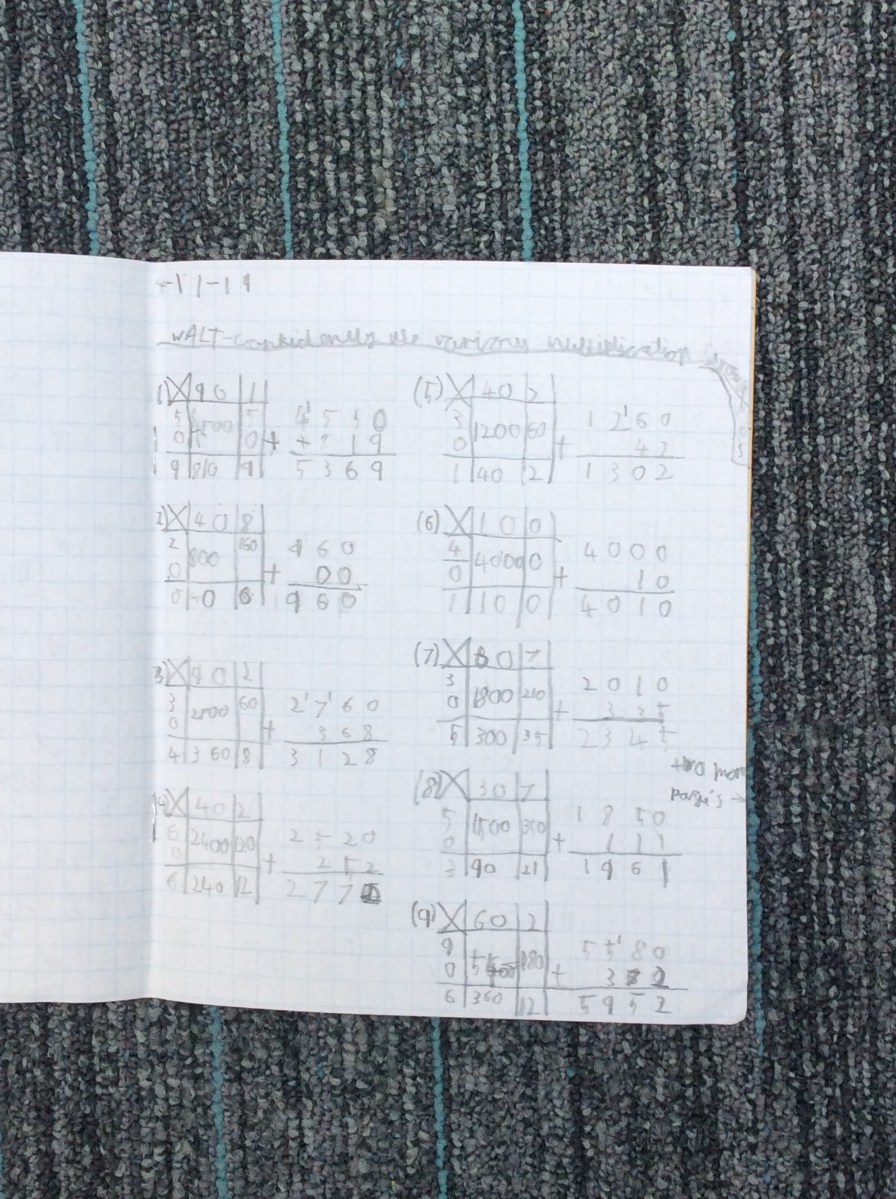 WALT-confidently use various multiplication
1) X 90 1
50 4500 50
9 810 9
4 5 5 0
+ 8 1 9
5 3 6 9
2) X 40 8
20 800 160
0 0 0
9 6 0
+ 0 0
9 6 0
3) X 90 2
30 2700 60
4 360 8
2 7 6 0
+ 3 6 8
3 1 2 8
4) X 40 2
60 2400 120
6 240 12
2 5 2 0
+ 2 5 2
2 7 7
(5) X 40 2
30 1200 60
1 40 2
1 2 6 0
+ 4 2
1 3 0 2
(6) X 10 0
40 400 0
1 10 0
4 0 0 0
+ 1 0
4 0 1 0
(7) X 60 7
30 1800 210
5 300 35
2 0 1 0
+ 3 3 5
2 3 4 5
two more
page's →
(8) X 30 7
50 1500 350
3 90 21
1 8 5 0
+ 1 1 1
1 9 6 1
(9) X 60 2
90 180
6 360 12
5 5 8 0
+ 3 7 2
5 9 5 2